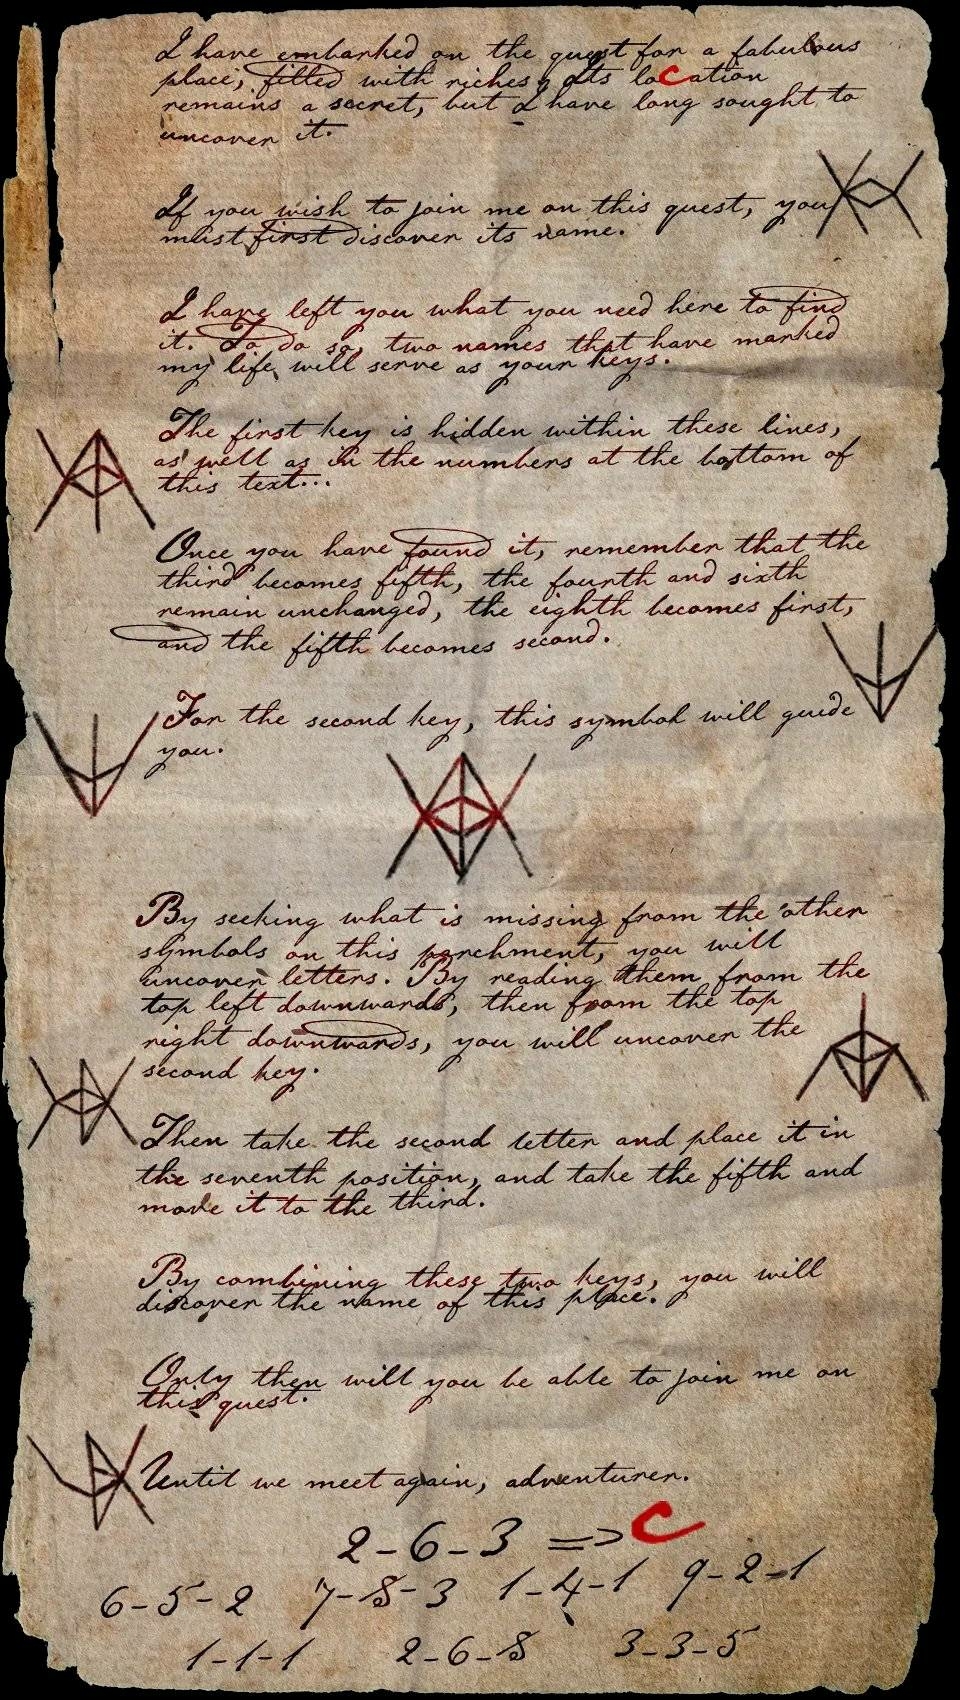 I have embarked on the quest for a fabulous
place, filled with riches, Its location
remains a secret, but I have long sought to
uncover it.
If you wish to join me on this quest, you
must first discover its name.
I have left you what you need here to find
it. To do so, two names that have marked
my life, will serve as your keys.
The first key is hidden within these lines,
as well as in the numbers at the bottom of
this text...
Once you have found it, remember that the
third becomes fifth, the fourth and sixth
remain unchanged, the eighth becomes first,
and the fifth becomes second.
For the second key, this symbol will guide
you.
By seeking what is missing from the other
symbols on this parchment, you will
uncover letters. By reading them from the
top left downwards, then from the top
right downwards, you will uncover the
second key.
Then take the second letter and place it in
the seventh position, and take the fifth and
move it to the third.
By combining these two keys, you will
discover the name of this place.
Only then will you be able to join me on
this quest.
Until we meet again, adventurer.
2-6-3 => C
6-5-2 7-8-3 1-4-1 9-2-1
1-1-1 2-6-8 3-3-5